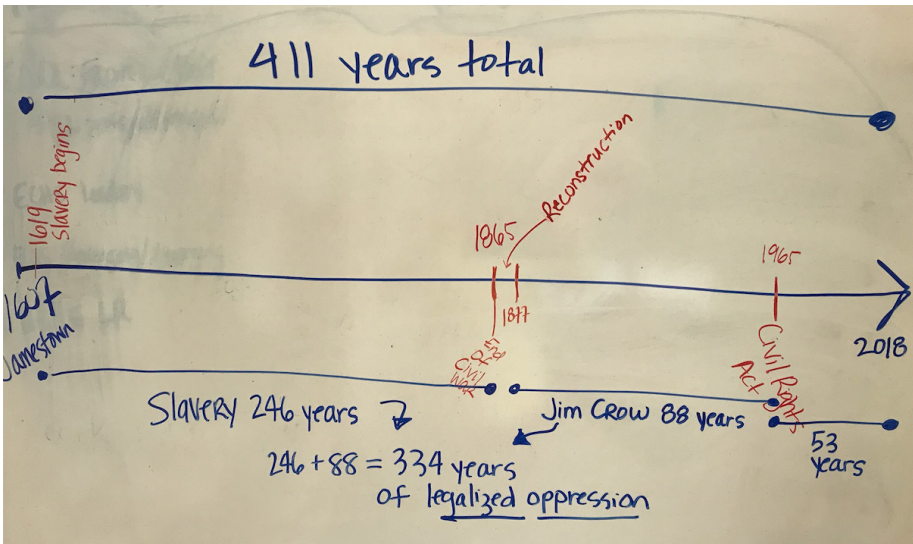 411 years total
1619
Slavery begins
Reconstruction
1865
1877
1965
1607
Jamestown
2018
End of
Civil
War
Civil Rights
Act
Slavery 246 years
Jim Crow 88 years
53
years
246+88 = 334 years
of legalized oppression